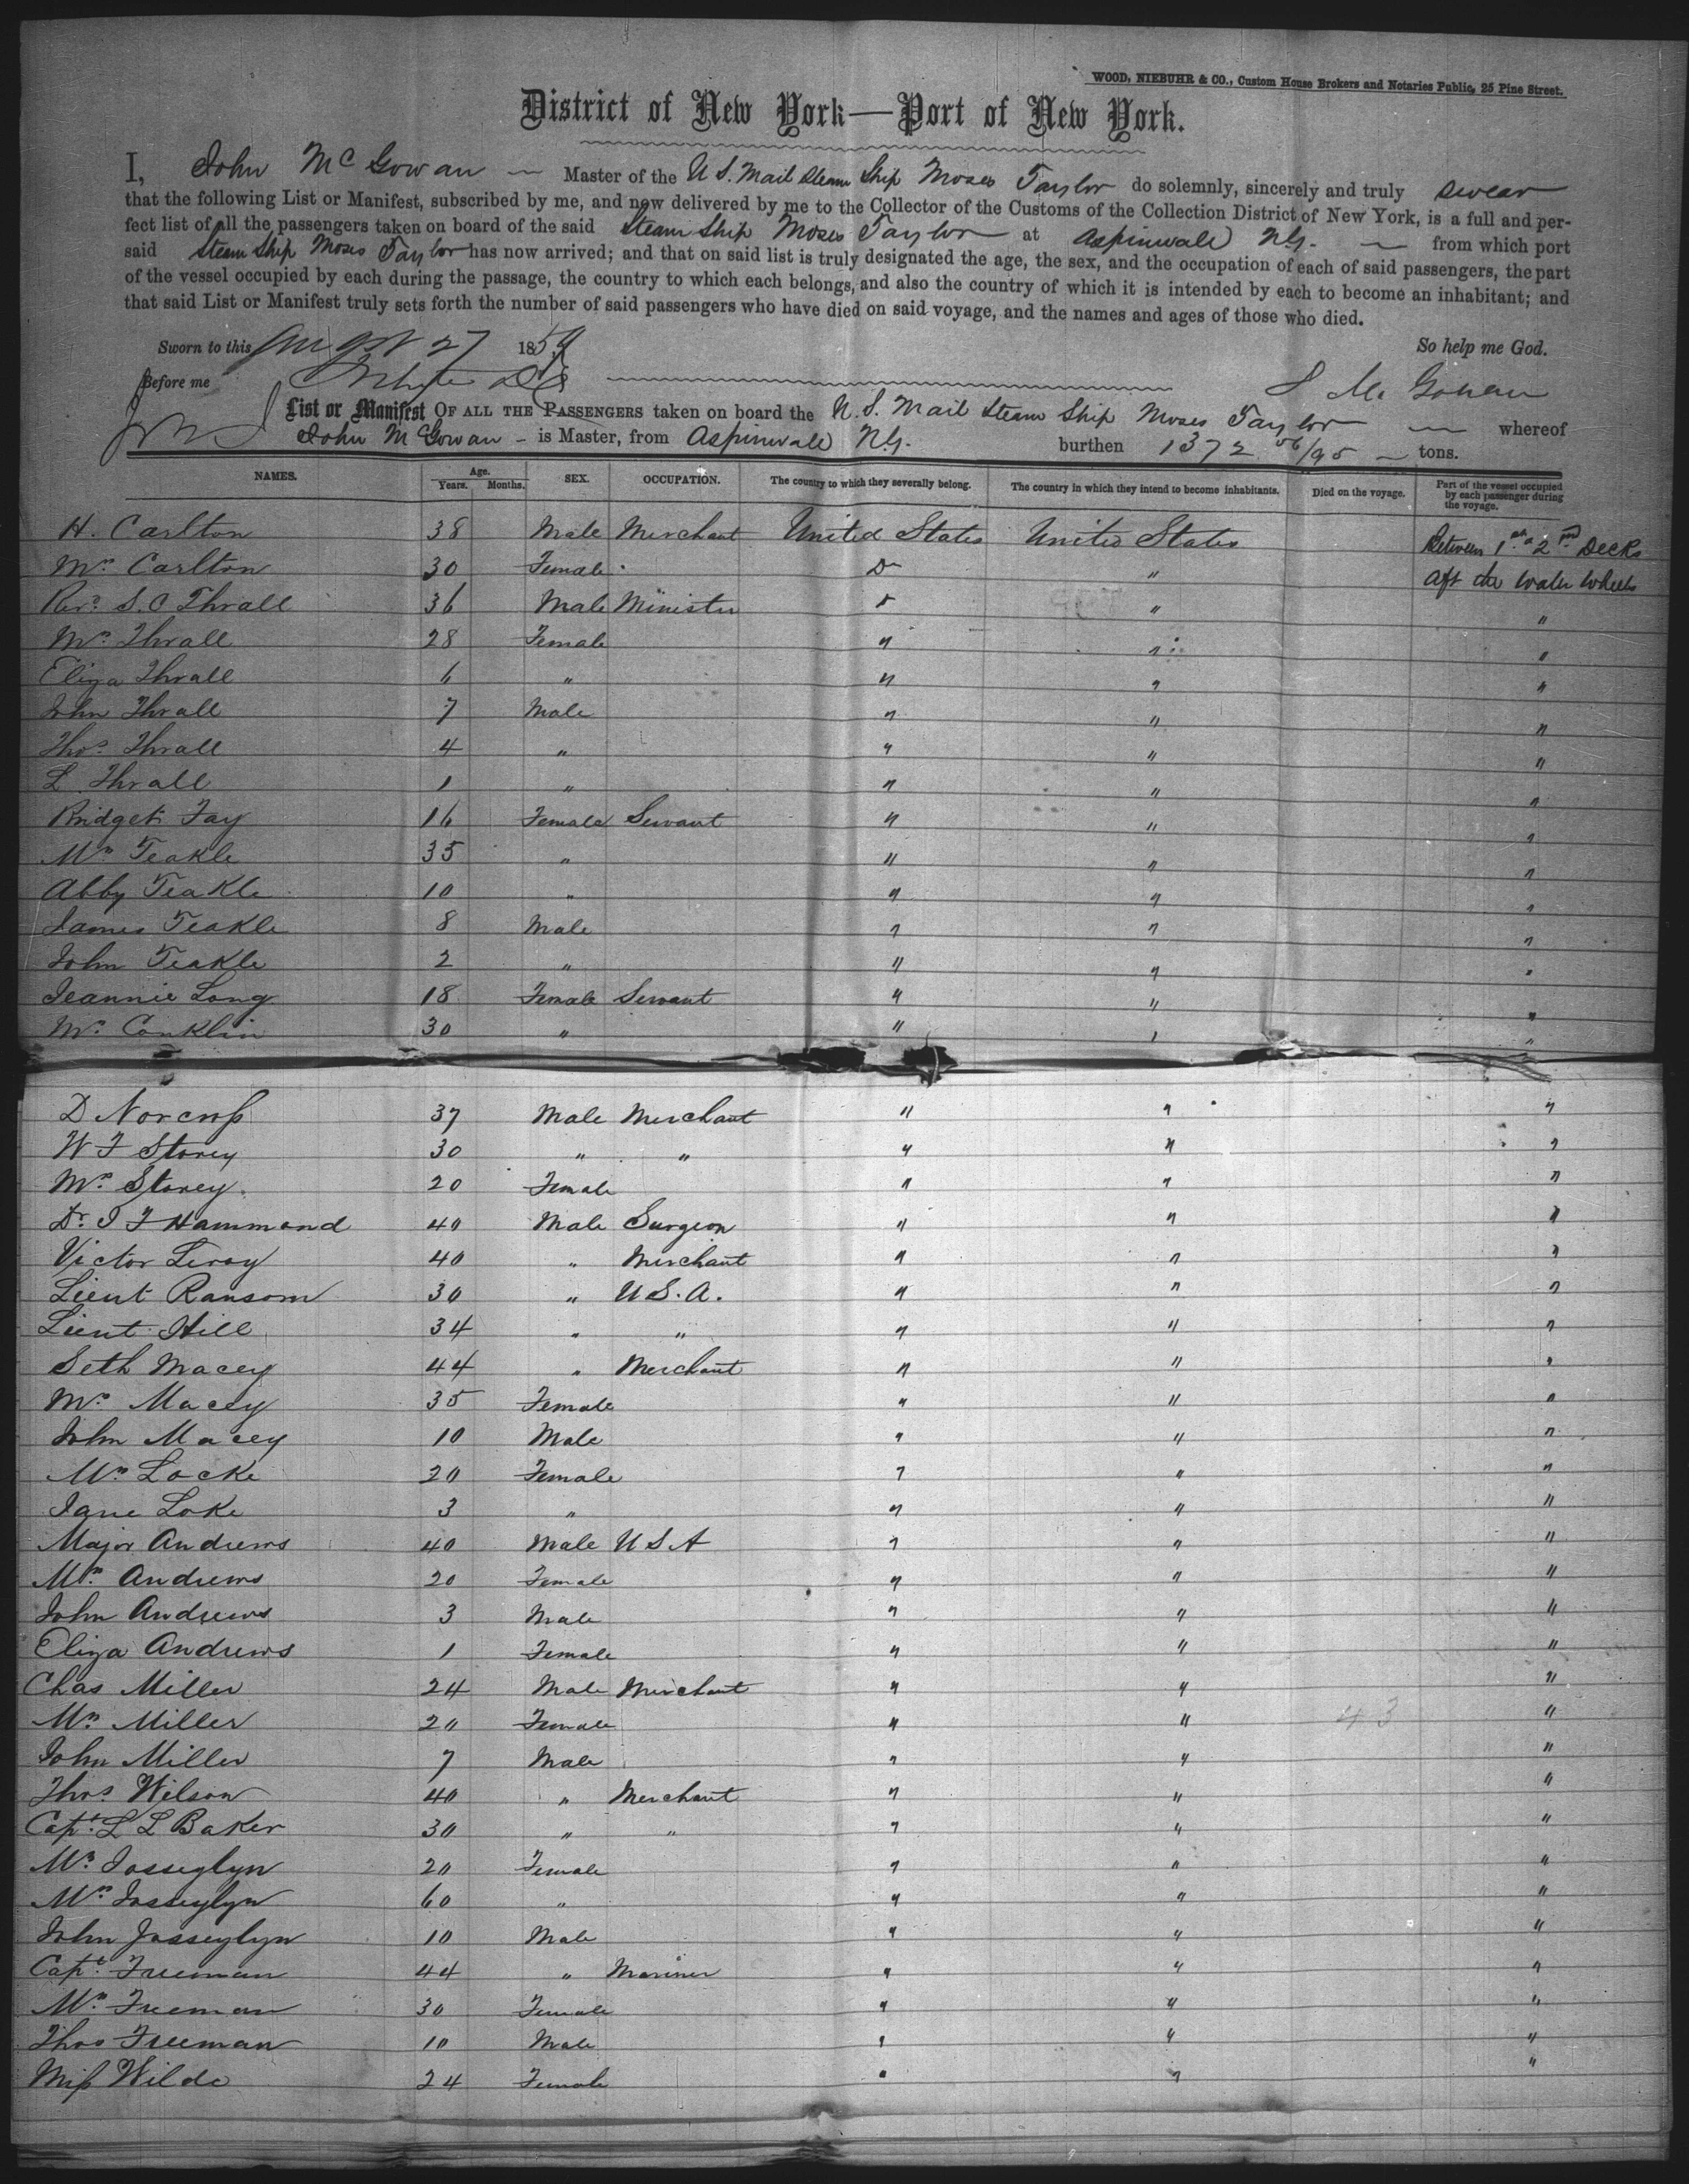 WOOD, NIEBUHR & CO., Custom House Brokers and Notaries Public, 25 Pine Street.
District of New York—Port of New York.
I, John Mc Gowan — Master of the U S. Mail Steam Ship Moses Taylor do solemnly, sincerely and truly swear
that the following List or Manifest, subscribed by me, and now delivered by me to the Collector of the Customs of the Collection District of New York, is a full and per-
fect list of all the passengers taken on board of the said Steam Ship Moses Taylor at Aspinwall N.G. — from which port
said Steam Ship Moses Taylor has now arrived; and that on said list is truly designated the age, the sex, and the occupation of each of said passengers, the part
of the vessel occupied by each during the passage, the country to which each belongs, and also the country of which it is intended by each to become an inhabitant; and
that said List or Manifest truly sets forth the number of said passengers who have died on said voyage, and the names and ages of those who died.
Sworn to this August 27 1859 So help me God.
Before me J Mc Gowan
List or Manifest OF ALL THE PASSENGERS taken on board the U. S. Mail Steam Ship Moses Taylor — whereof
John McGowan - is Master, from Aspinwall N.G. burthen 1372 56/95 - tons.
NAMES. Age. Years. Months. SEX. OCCUPATION. The country to which they severally belong. The country in which they intend to become inhabitants. Died on the voyage. Part of the vessel occupied by each passenger during the voyage.
H. Carlton 38 Male Merchant United States United States Between 1st & 2nd Decks
Mrs Carlton 30 Female Do " aft the water wheels
Revd S. C Thrall 36 Male Minister " " "
Mrs Thrall 28 Female " " "
Eliza Thrall 6 " " " "
John Thrall 7 Male " " "
Thos Thrall 4 " " " "
L Thrall 1 " " " "
Bridget Fay 16 Female Servant " " "
Mrs Teakle 35 " " " "
Abby Teakle 10 " " " "
James Teakle 8 Male " " "
John Teakle 2 " " " "
Jeannie Long 18 Female Servant " " "
Mrs Conklin 30 " " " "
D Norcross 37 Male Merchant " " "
W F Storey 30 " " " " "
Mrs Storey 20 Female " " "
Dr. J F Hammond 40 Male Surgeon " " "
Victor Leroy 40 " Merchant " " "
Lieut Ransom 30 " U S. A. " " "
Lieut Hill 34 " " " " "
Seth Macey 44 " Merchant " " "
Mrs Macey 35 Female " " "
John Macey 10 Male " " "
Mrs Locke 20 Female " " "
Jane Loke 3 " " " "
Major Andrews 40 Male U S A " " "
Mrs Andrews 20 Female " " "
John Andrews 3 Male " " "
Eliza Andrews 1 Female " " "
Chas Miller 24 Male Merchant " " "
Mrs Miller 20 Female " " 43 "
John Miller 7 Male " " "
Thos Wilson 40 " Merchant " " "
Capt. L L Baker 30 " " " " "
Mrs Josseylyn 20 Female " " "
Mrs Josseylyn 60 " " " "
John Josseylyn 10 Male " " "
Capt. Freeman 44 " Mariner " " "
Mrs Freeman 30 Female " " "
Thos Freeman 10 Male " " "
Miss Wilde 24 Female " " "